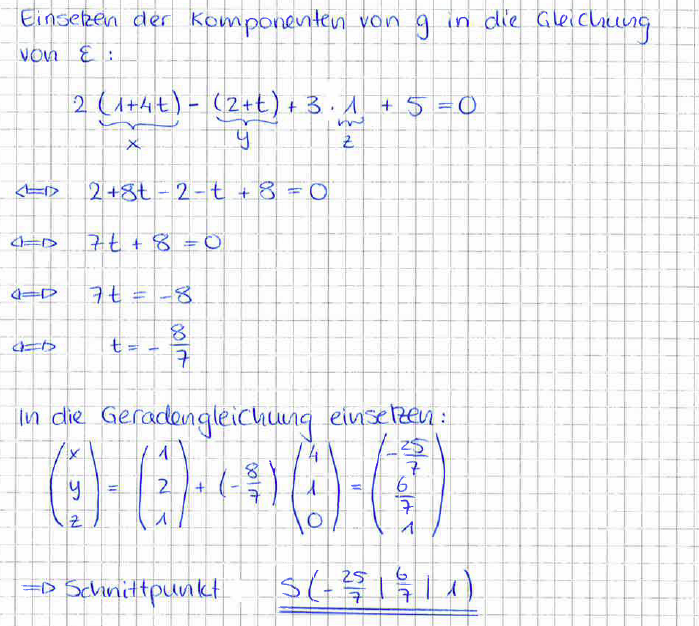 Einsetzen der Komponenten von g in die Gleichung
von ε :
2 (1+4t) - (2+t) + 3 · 1 + 5 = 0
x y z
⇔ 2+8t - 2 - t + 8 = 0
⇔ 7t + 8 = 0
⇔ 7t = -8
⇔ t = - 8/7
In die Geradengleichung einsetzen:
(x y z) = (1 2 1) + (- 8/7) (4 1 0) = (- 25/7 6/7 1)
⇒ Schnittpunkt S(- 25/7 | 6/7 | 1)